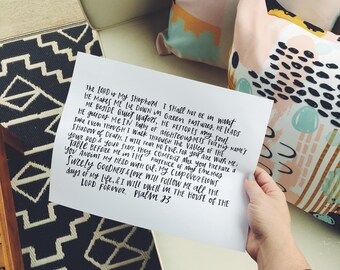 The LORD is my Shepherd, I shall not be in want
He makes me lie down in green pastures, He leads
me beside quiet waters, He restores my soul.
He guides me in paths of righteousness for his name's
sake. Even though I walk through the valley of the
shadow of death, I will fear no evil, for you are with me.
your rod & your staff, they comfort me. You prepare a
table before me in the presence of my enemies
you anoint my head with oil; my cup overflows.
Surely goodness & love will follow me all the
days of my life, & I will dwell in the house of the
LORD forever. Psalm 23